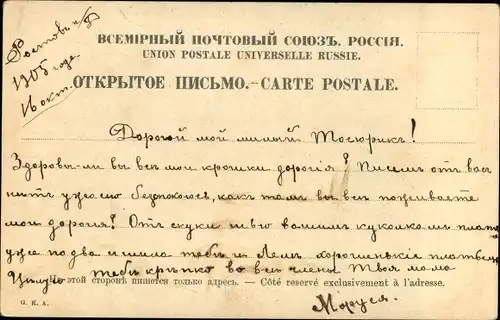 Ростовъ н/Д
1905 года.
16 окт.
ВСЕМІРНЫЙ ПОЧТОВЫЙ СОЮЗЪ. РОССІЯ.
UNION POSTALE UNIVERSELLE RUSSIE.
ОТКРЫТОЕ ПИСЬМО.—CARTE POSTALE.
Дорогой мой милый Тосюрикъ!
Здоровы-ли вы всѣ мои крошки дорогія? Писемъ отъ васъ
нѣтъ ужасно безпокоюсь, какъ тамъ вы всѣ поживаете
мои дорогія! Отъ скуки шью вашимъ кукламъ платья
уже по два и шила тебѣ и Лелѣ хорошенькія платьица
Цѣлую тебя крѣпко во всѣ члены Твоя мама
На этой сторонѣ пишется только адресъ. — Côté reservé exclusivement à l'adresse.
Маруся.
G. K. A.